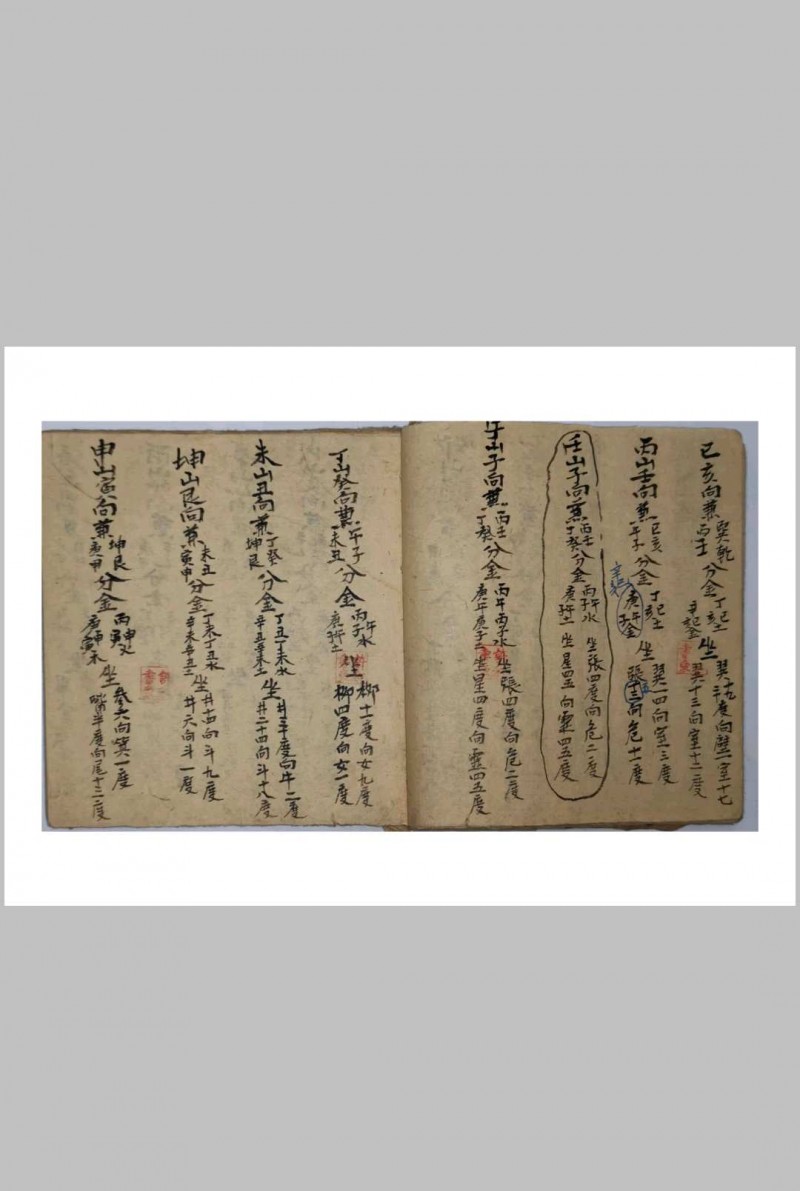 巳亥向兼巽乾丙壬分金丁亥丁巳土辛亥辛巳金坐翼十九度向壁一室十七翼十三向室十二度
丙山壬向兼巳亥午子分金丁亥丁巳土庚午庚子坐翼一四向室三度張十三向危十一度
壬山子向兼丙壬丁癸分金丙子丙午水庚子庚午土坐張四度向危二度坐星四向虛四五度
午山子向兼丙壬丁癸分金丙午丙子水庚午庚子土坐張四度向危二度坐星四度向虛四五度
丁山癸向兼午子未丑分金丙子丙午水庚子庚午土坐柳十一度向女九度柳四度向女一度
未山丑向兼丁癸坤艮分金丁丑丁未水辛丑辛未土坐井三十度向牛二度井二十四向斗十八度
坤山艮向兼未丑寅申分金丁未丁丑水辛未辛丑土坐井十四向斗九度井六向斗一度
申山寅向兼坤艮庚甲分金丙申丙寅火庚申庚寅木坐參六向箕一度觜半度向尾十三二度